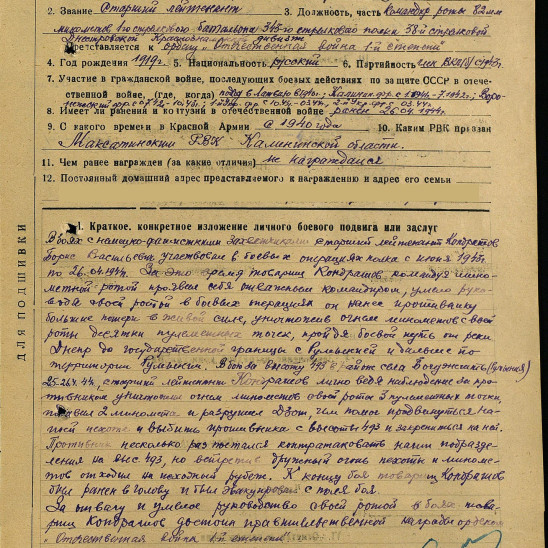 2. Звание Старший лейтенант 3. Должность, часть Командир роты 82 мм
минометов, 1го стрелкового батальона 315го стрелкового полка 38й стрелковой
Днестровской Краснознаменной дивизии
Представляется к ордену "Отечественная война 1й степени"
4. Год рождения 1919г. 5. Национальность русский 6. Партийность член ВКП/б/
7. Участие в гражданской войне, последующих боевых действиях по защите СССР и отече-
ственной войне, (где, когда)
8. Имеет ли ранения и контузии в отечественной войне ранен 26.04.1944г.
9. С какого времени в Красной Армии с 1940 года 10. Каким РВК призван
Максатихинским РВК Калининской области.
11. Чем ранее награжден (за какие отличия) не награждался
12. Постоянный домашний адрес представляемого к награждению и адрес его семьи
ДЛЯ ПОДШИВКИ
I. Краткое, конкретное изложение личного боевого подвига или заслуг
В боях с немецко-фашистскими захватчиками старший лейтенант Кондрашов
Борис Васильевич участвовал в боевых операциях полка с июня 1943г.
по 26.04.1944г. За это время товарищ Кондрашов, командуя мино-
метной ротой проявил себя отважным командиром, умело руко-
водя своей ротой в боевых операциях он нанес противнику
большие потери в живой силе, уничтожив огнем минометов своей
роты десятки пулеметных точек, пройдя боевой путь от реки
Днепр до государственной границы с Румынией и дальше по
территории Румынии. В бою за высоту 493 в районе села
25-26.4.44г. старший лейтенант Кондрашов лично ведя наблюдение за про-
тивником уничтожил огнем минометов своей роты 3 пулеметных точки,
подавил 2 миномета и разрушил Дзот, чем помог продвинуться на-
шей пехоте и выбить противника с высоты 493 и закрепиться на ней.
Противник несколько раз пытался контратаковать наши подразде-
ления на выс. 493, но встретив дружный огонь пехоты и минометов
отходил на исходный рубеж. К концу боя товарищ Кондрашов
был ранен в голову и был эвакуирован с поля боя.
За отвагу и умелое руководство своей ротой в боях това-
рищ Кондрашов достоин правительственной награды орденом
"Отечественная война 1й степени"